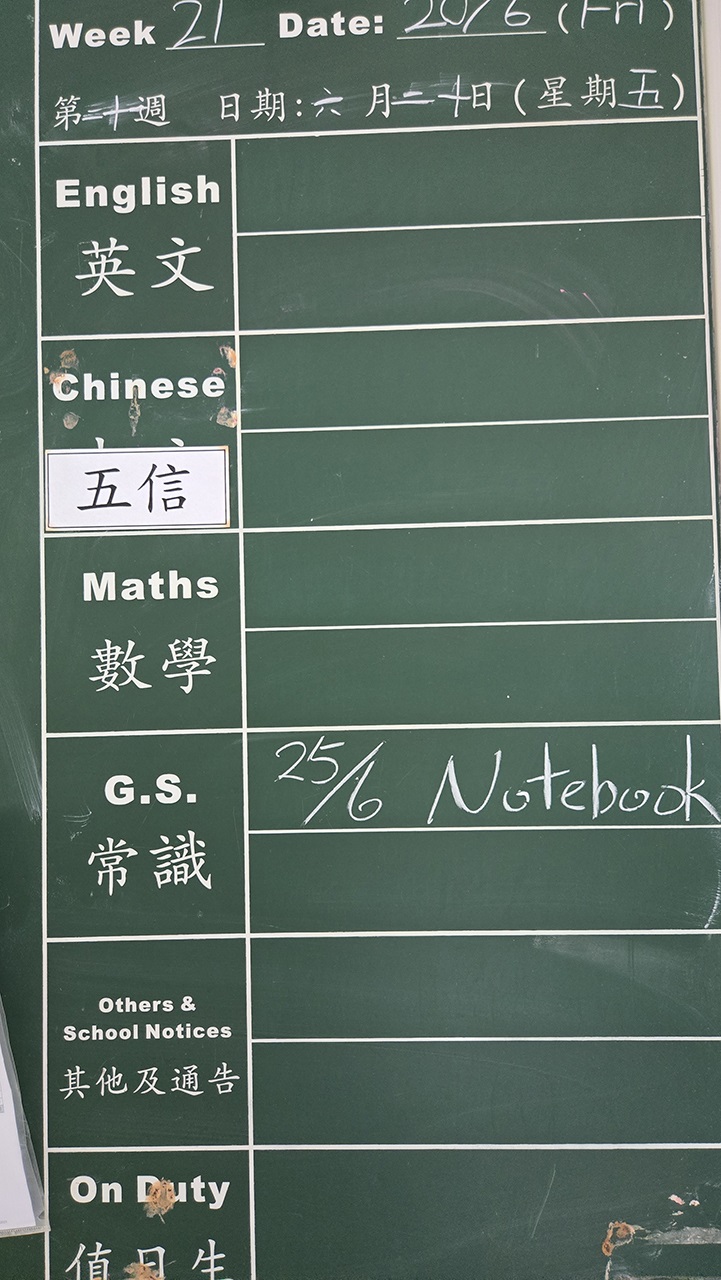 Week 21 Date: 20/6 (Fri)
第二十週 日期:六月二十日(星期五)
English
英文
Chinese
五信
Maths
數學
G.S. 25/6 Notebook
常識
Others &
School Notices
其他及通告
On Duty
值日生